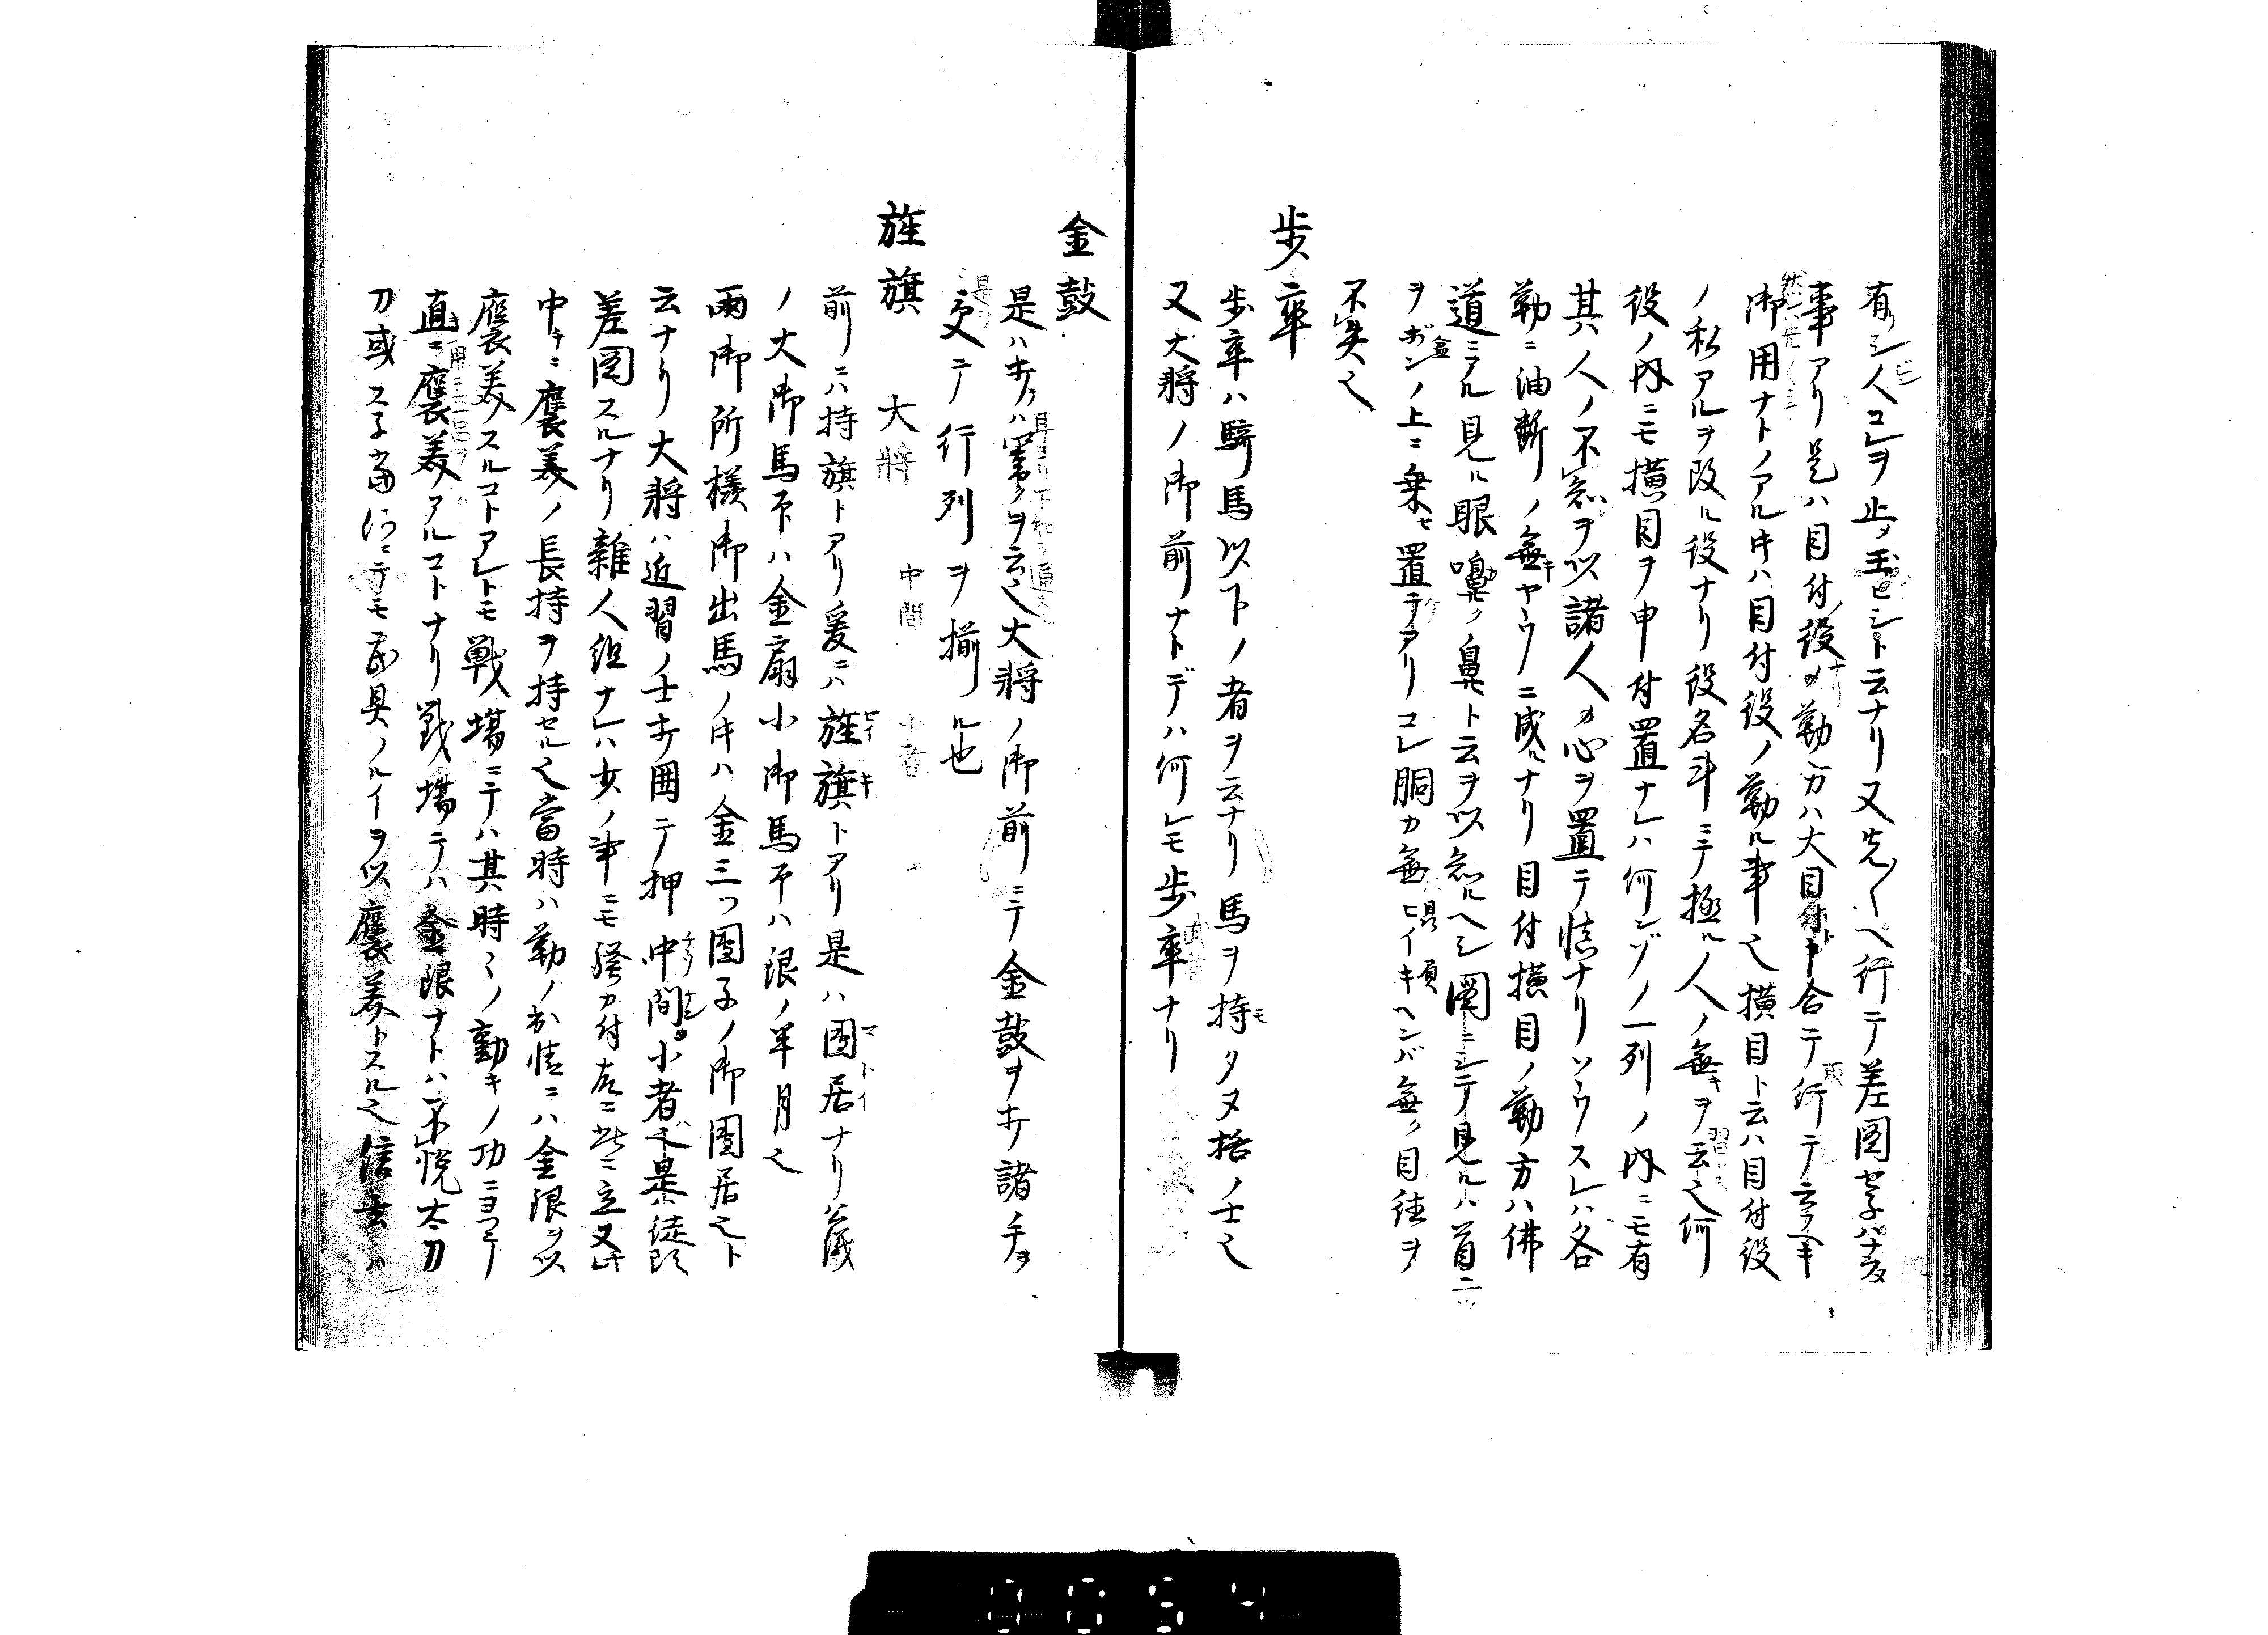 有ラシ人コレヲ止メ玉ヒシト云ナリ又先〱ヘ行テ差図セ子ハナラヌ
事アリ是ハ目付役ナリ勤方ハ大目付ト申合テ行テ云フヘキ
御用ナトノアル片ハ目付役ノ勤ル事也横目ト云ハ目付役
ノ私アルヲ改ル役ナリ役名斗ニテ極ル人ノ無キヲ云也何
役ノ内ニモ横目ヲ申付置ナレハ何ンゾノ一列ノ内ニモ有
其人ノ不知ヲ以諸人カ心ヲ置テ慎ナリソウスレハ各
勤ニ油断ノ無キヤウニ成ルナリ目付横目ノ勤方ハ佛
道ニアル見ル眼嗅ク鼻ト云ヲ以知ルヘシ図ニシテ見レハ首二ツ
ヲボンノ上ニ乗セ置テアリコレ胴カ無ヒイキヘンバ無ク目径ヲ
不失也
歩卒
歩卒ハ騎馬以下ノ者ヲ云ナリ馬ヲ持タヌ格ノ士也
又大将ノ御前ナトデハ何レモ歩卒ナリ
金鼓
是ハ大将ノ御前ニテ金鼓ヲ打諸手ヲ
交テ行列ヲ揃ル也
旌旗 大將 中間 小者
前リニハ持旗トアリ爰ニハ旌旗トアリ是ハ圑居ナリ公儀
ノ大御馬印ハ金扇小御馬印ハ銀ノ半月也
両御所様御出馬ノ片ハ金三ツ團子ノ御圑居也ト
云ナリ大将ハ近習ノ士打囲テ押中間小者也是ハ徒頭
差図スルナリ雑人組ナレハ少ノ事ニモ騒カ付故ニ此ニ立又此
中キニ褒美ノ長持ヲ持セル也當時ハ勤ノ出情ニハ金銀ヲ以
褒美スルコトアレトモ戦場ニテハ其時〱ノ働キノ功ニヨツテ
直キニ褒美アルコトナリ戦場テハ金銀ナトハ不悦太刀
刀或ス子當何ニテモ武具ノルイヲ以褒美トスル也信玄ハ